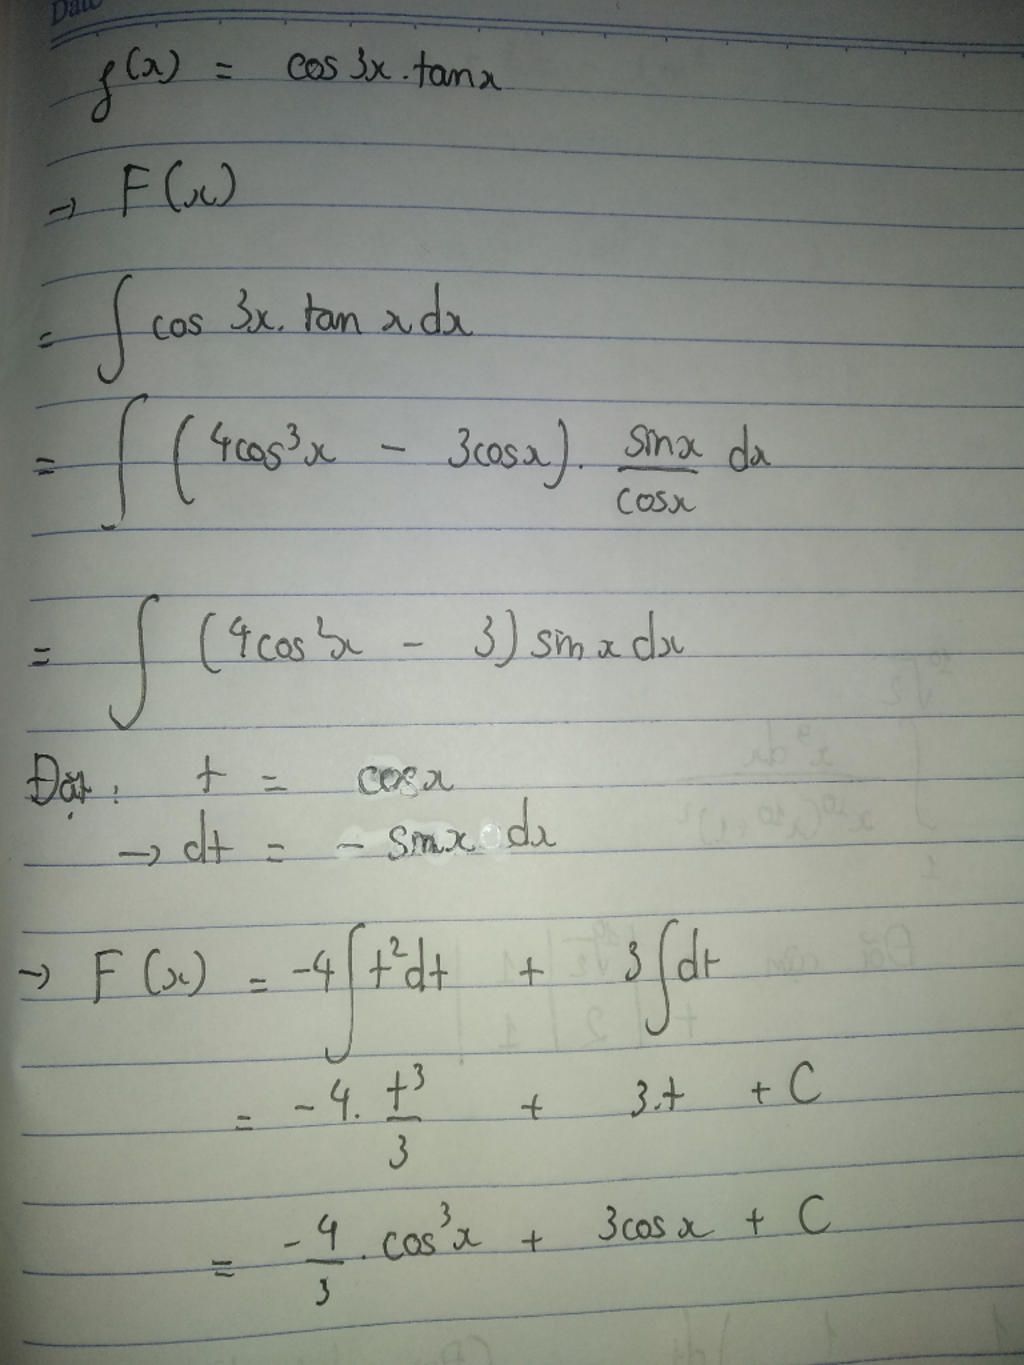 Date
f(x) = cos 3x . tanx
→ F(x)
= ∫ cos 3x. tan x dx
= ∫ (4cos³x - 3cosx). sinx/cosx dx
= ∫ (4cos³x - 3) sinx dx
Đặt: t = cosx
→ dt = - sinx dx
→ F(x) = -4∫t²dt + 3∫dt
= -4. t³/3 + 3.t + C
= -4/3 . cos³x + 3cosx + C